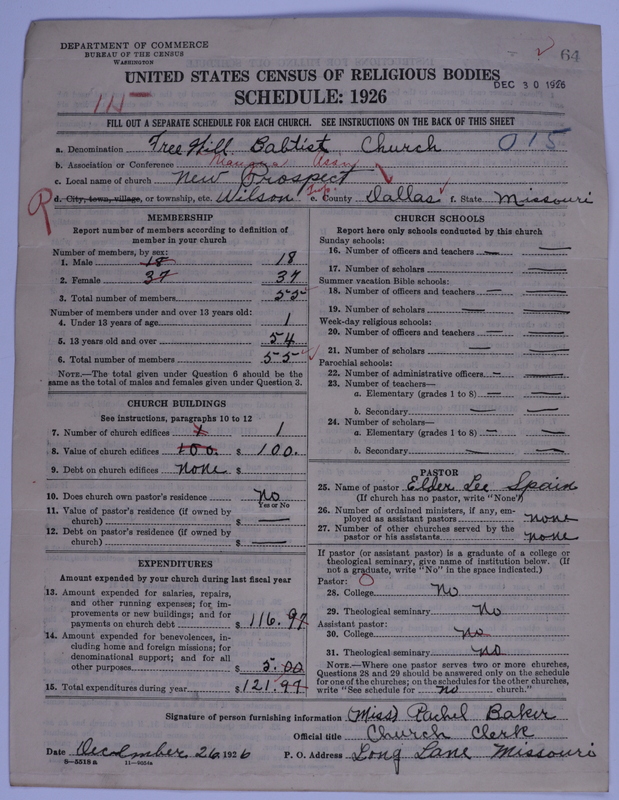 DEPARTMENT OF COMMERCE
BUREAU OF THE CENSUS
WASHINGTON
64
UNITED STATES CENSUS OF RELIGIOUS BODIES
DEC 30 1926
SCHEDULE: 1926
FILL OUT A SEPARATE SCHEDULE FOR EACH CHURCH. SEE INSTRUCTIONS ON THE BACK OF THIS SHEET
a. Denomination Free Will Babtist Church 015
b. Association or Conference Assn
c. Local name of church New Prospect
d. City, town, village, or township, etc. Wilson Twp. e. County Dallas f. State Missouri
MEMBERSHIP
Report number of members according to definition of member in your church
Number of members, by sex:
1. Male 18 18
2. Female 37 37
3. Total number of members 55
Number of members under and over 13 years old:
4. Under 13 years of age 1
5. 13 years old and over 54
6. Total number of members 55
NOTE.—The total given under Question 6 should be the same as the total of males and females given under Question 3.
CHURCH BUILDINGS
See instructions, paragraphs 10 to 12
7. Number of church edifices 1 1
8. Value of church edifices 100 $ 100.
9. Debt on church edifices none $
10. Does church own pastor's residence No
Yes or No
11. Value of pastor's residence (if owned by church) $ —
12. Debt on pastor's residence (if owned by church) $ —
EXPENDITURES
Amount expended by your church during last fiscal year
13. Amount expended for salaries, repairs, and other running expenses; for improvements or new buildings; and for payments on church debt $ 116.97
14. Amount expended for benevolences, including home and foreign missions; for denominational support; and for all other purposes $ 5.00
15. Total expenditures during year $ 121.97
CHURCH SCHOOLS
Report here only schools conducted by this church
Sunday schools:
16. Number of officers and teachers — —
17. Number of scholars — —
Summer vacation Bible schools:
18. Number of officers and teachers — —
19. Number of scholars — —
Week-day religious schools:
20. Number of officers and teachers — —
21. Number of scholars — —
Parochial schools:
22. Number of administrative officers — —
23. Number of teachers—
a. Elementary (grades 1 to 8) — —
b. Secondary — —
24. Number of scholars—
a. Elementary (grades 1 to 8) — —
b. Secondary — —
PASTOR
25. Name of pastor Elder Lee Spain
(If church has no pastor, write "None")
26. Number of ordained ministers, if any, employed as assistant pastors none
27. Number of other churches served by the pastor or his assistants none
If pastor (or assistant pastor) is a graduate of a college or theological seminary, give name of institution below. (If not a graduate, write "No" in the space indicated.)
Pastor:
28. College No
29. Theological seminary No
Assistant pastor:
30. College No
31. Theological seminary no
NOTE.—Where one pastor serves two or more churches, Questions 28 and 29 should be answered only on the schedule for one of the churches; on the schedules for the other churches, write "See schedule for no church."
Signature of person furnishing information (Miss) Rachel Baker
Official title Church Clerk
Date December 26, 1926 P. O. Address Long Lane Missouri
8-5518a 11-9554a